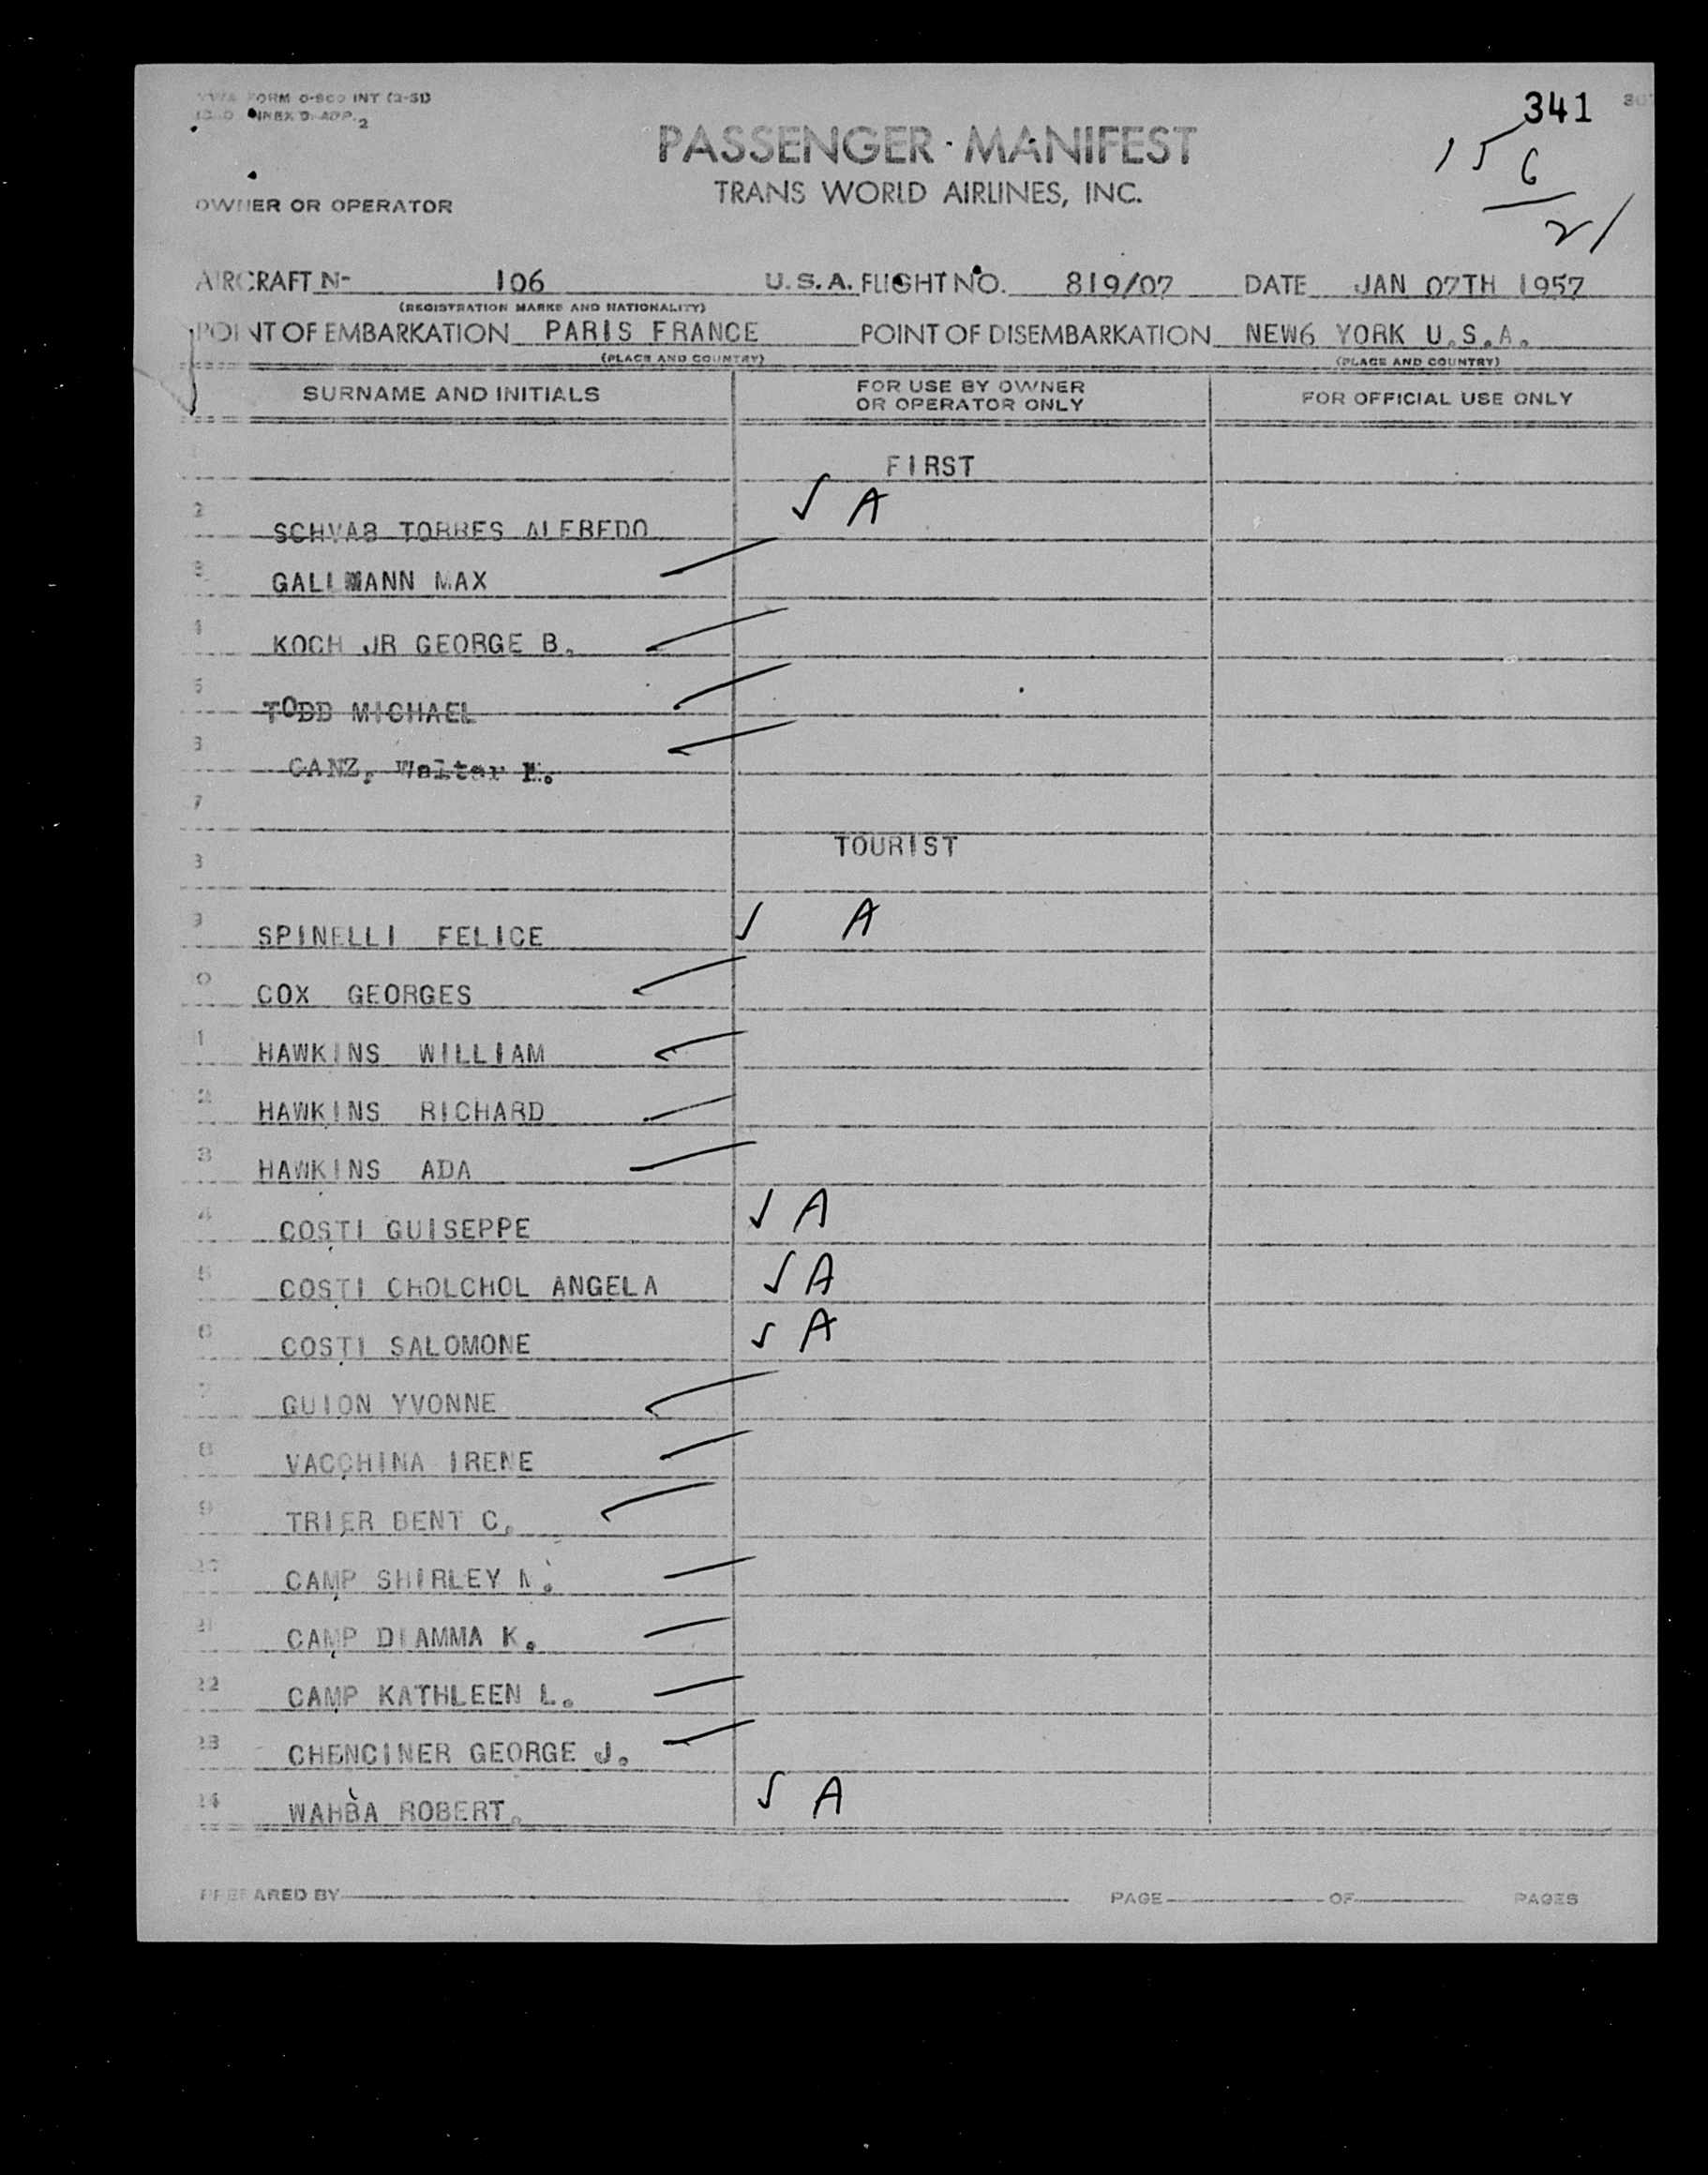 TWA FORM O-800 INT (2-51)
ICAO ANNEX 9-APP. 2
341
PASSENGER MANIFEST
TRANS WORLD AIRLINES, INC.
15
6
21
OWNER OR OPERATOR
AIRCRAFT N- 106 U.S.A. FLIGHT NO. 819/07 DATE JAN 07TH 1957
(REGISTRATION MARKS AND NATIONALITY)
POINT OF EMBARKATION PARIS FRANCE POINT OF DISEMBARKATION NEW6 YORK U.S.A.
(PLACE AND COUNTRY) (PLACE AND COUNTRY)
SURNAME AND INITIALS FOR USE BY OWNER OR OPERATOR ONLY FOR OFFICIAL USE ONLY
FIRST
2 SCHVAB TORRES ALFREDO √ A
3 GALLMANN MAX
4 KOCH JR GEORGE B.
5 TODD MICHAEL
6 GANZ, Walter
7
TOURIST
8
9 SPINELLI FELICE √ A
0 COX GEORGES
1 HAWKINS WILLIAM
2 HAWKINS RICHARD
3 HAWKINS ADA
4 COSTI GUISEPPE √ A
5 COSTI CHOLCHOL ANGELA √ A
6 COSTI SALOMONE √ A
7 GUION YVONNE
8 VACCHINA IRENE
9 TRIER BENT C.
20 CAMP SHIRLEY
21 CAMP DIAMMA K.
22 CAMP KATHLEEN L.
23 CHENCINER GEORGE J.
24 WAHBA ROBERT. √ A
PREPARED BY PAGE OF PAGES